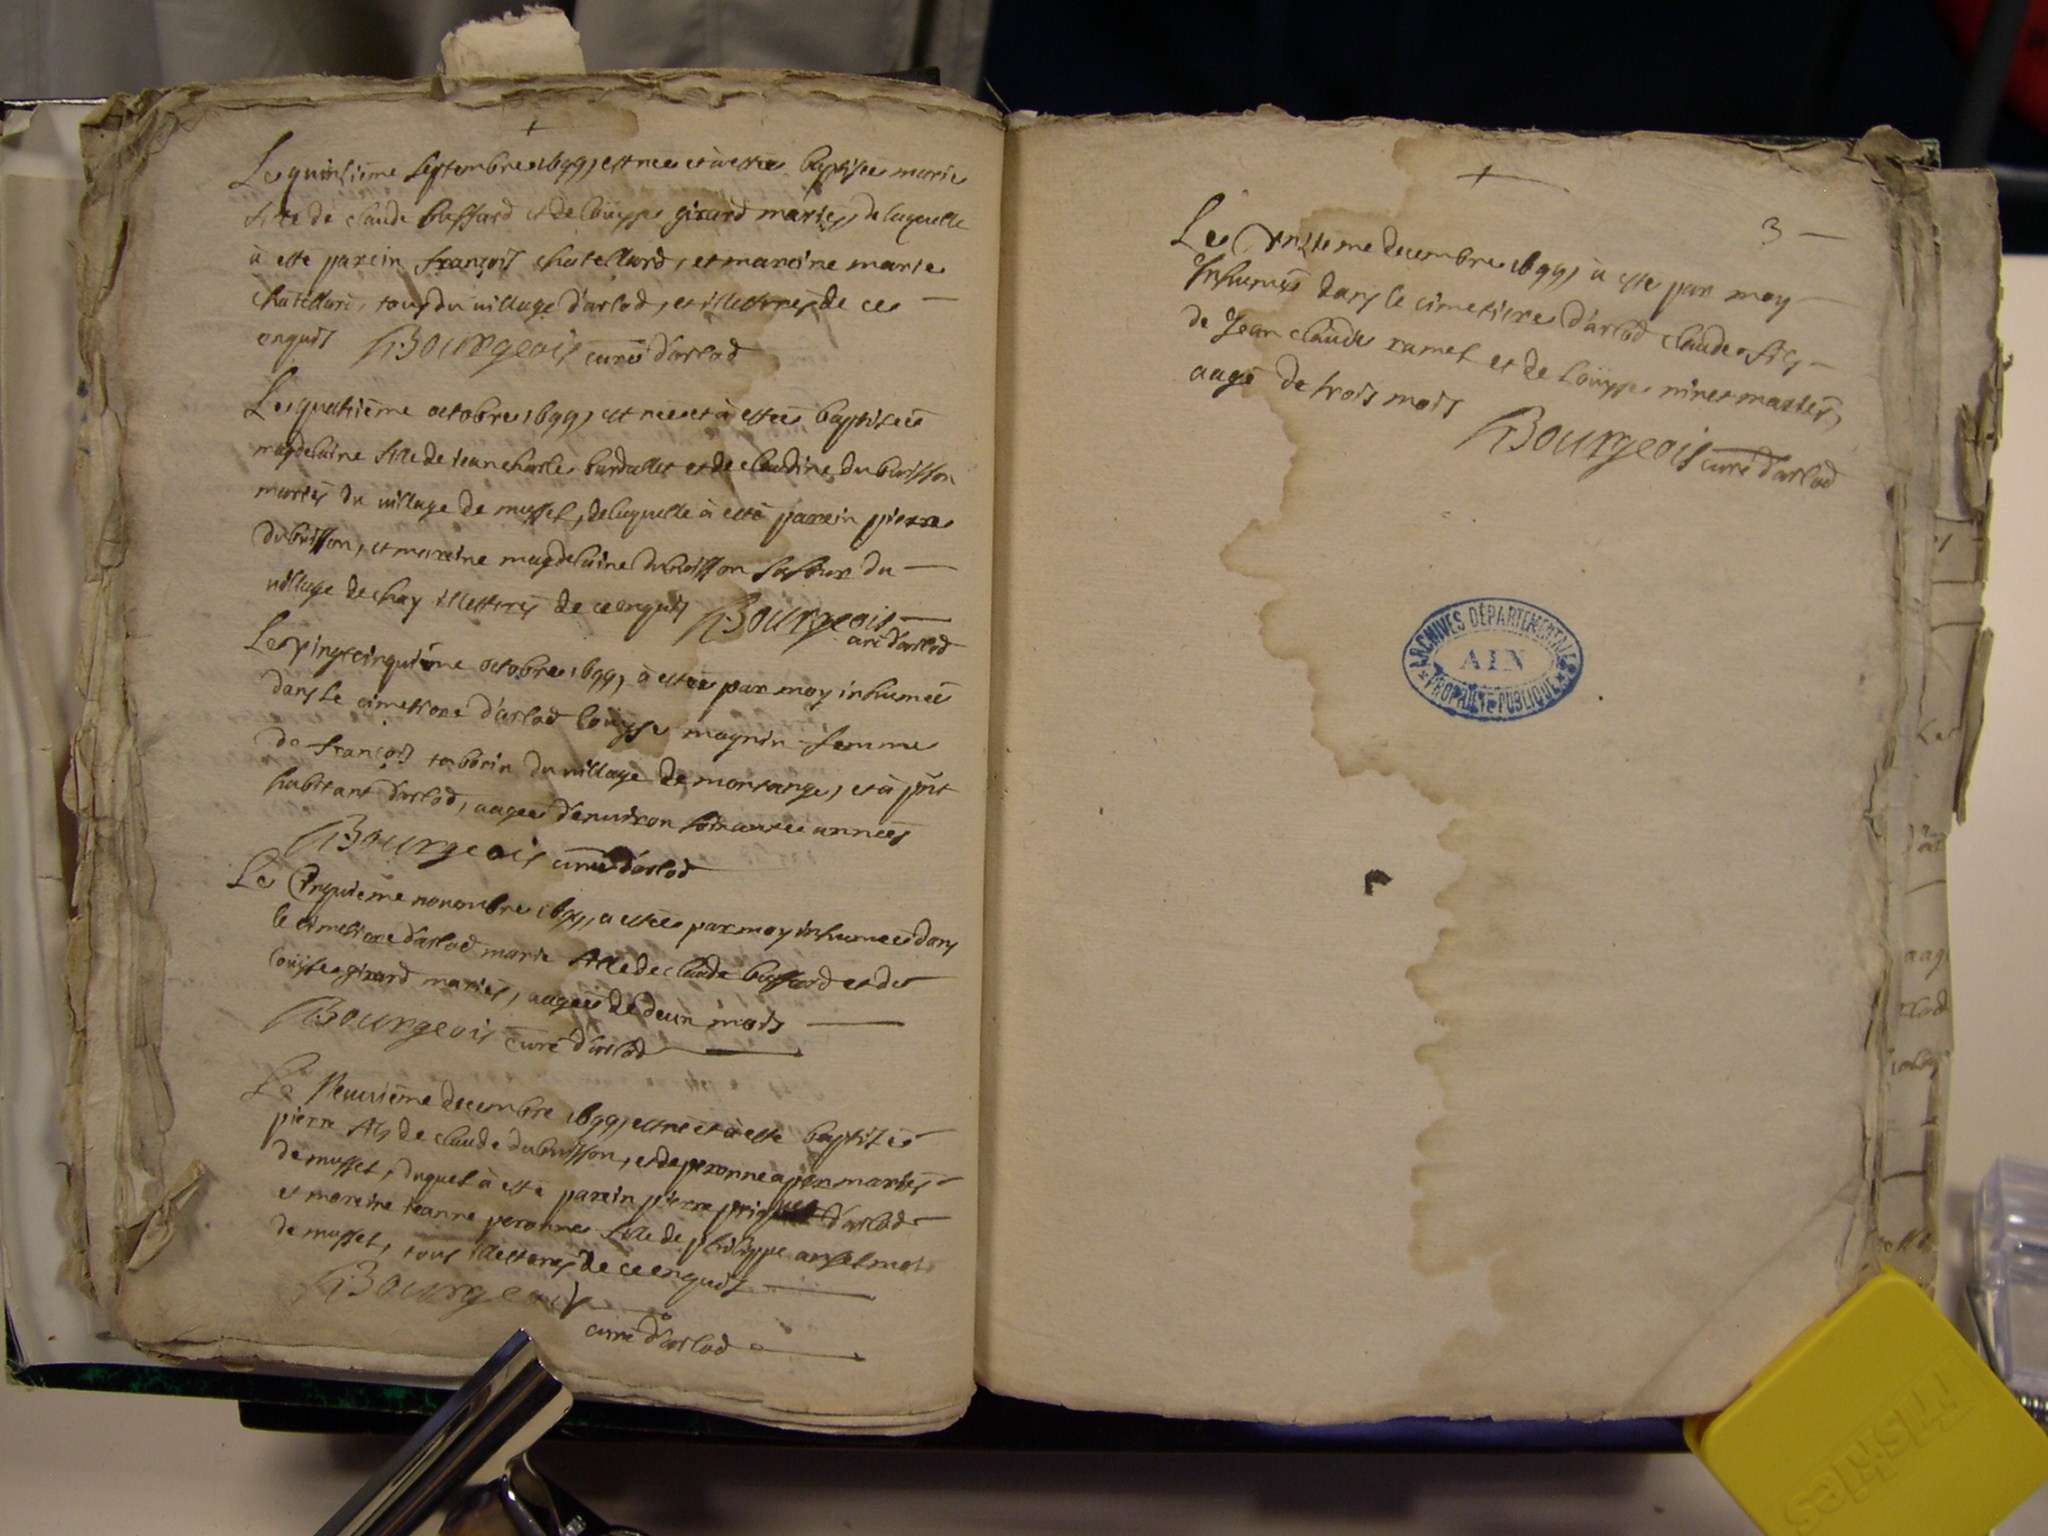 Le quinsieme septembre 1699, est nee et à estée baptisee marie
fille de claude buffard et de loüyse girard mariés, de laquelle
à esté parein françois chatellard, et mareine marie
chatellard, tous du village d'arlod, et illettrés de ce
enquis Bourgeois curé d'arlod
Le quatrième octobre 1699, est nee et à estée baptiseé
magdelaine fille de jean charles burdallet et de claudine du buisson
mariés du village de musset, de laquelle à esté parein pierre
dubuisson, et mareine magdelaine dubuisson sa soeur du
village de chay illettrés de ce enquis Bourgeois
curé d'arlod
Le vingtcinquième octobre 1699, à estée par moy inhumeé
dans le cimetiere d'arlod loüyse maynin femme
de françois tabborin du village de montange, et à pnt
habitant d'arlod, aageé d'environ soixante années
Bourgeois curé d'arlod
Le Cinquieme novembre 1699, a estée par moy inhumeé dans
le cimetiere d'arlod marie fille de claude buffard et de
loüyse girard mariés, aageé de deux mois
Bourgeois curé d'arlod
Le Neuvième decembre 1699, est né et à esté baptisé
pierre fils de claude dubuisson, et de peronne mariés
de musset, duquel à esté parein pierre d'arlod
et mareine jeanne peronne fille de philippe anselmet
de musset, tous illettrés de ce enquis
Bourgeois
curé d'arlod
3
Le Onzieme decembre 1699, à esté par moy
Inhumé dans le cimetiere d'arlod claude fils
de Jean claude ramel et de loüyse ninet mariés,
aagé de trois mois
Bourgeois curé d'arlod
ARCHIVES DÉPARTEMENTALES
AIN
PROPRIÉTÉ PUBLIQUE
Fiskies